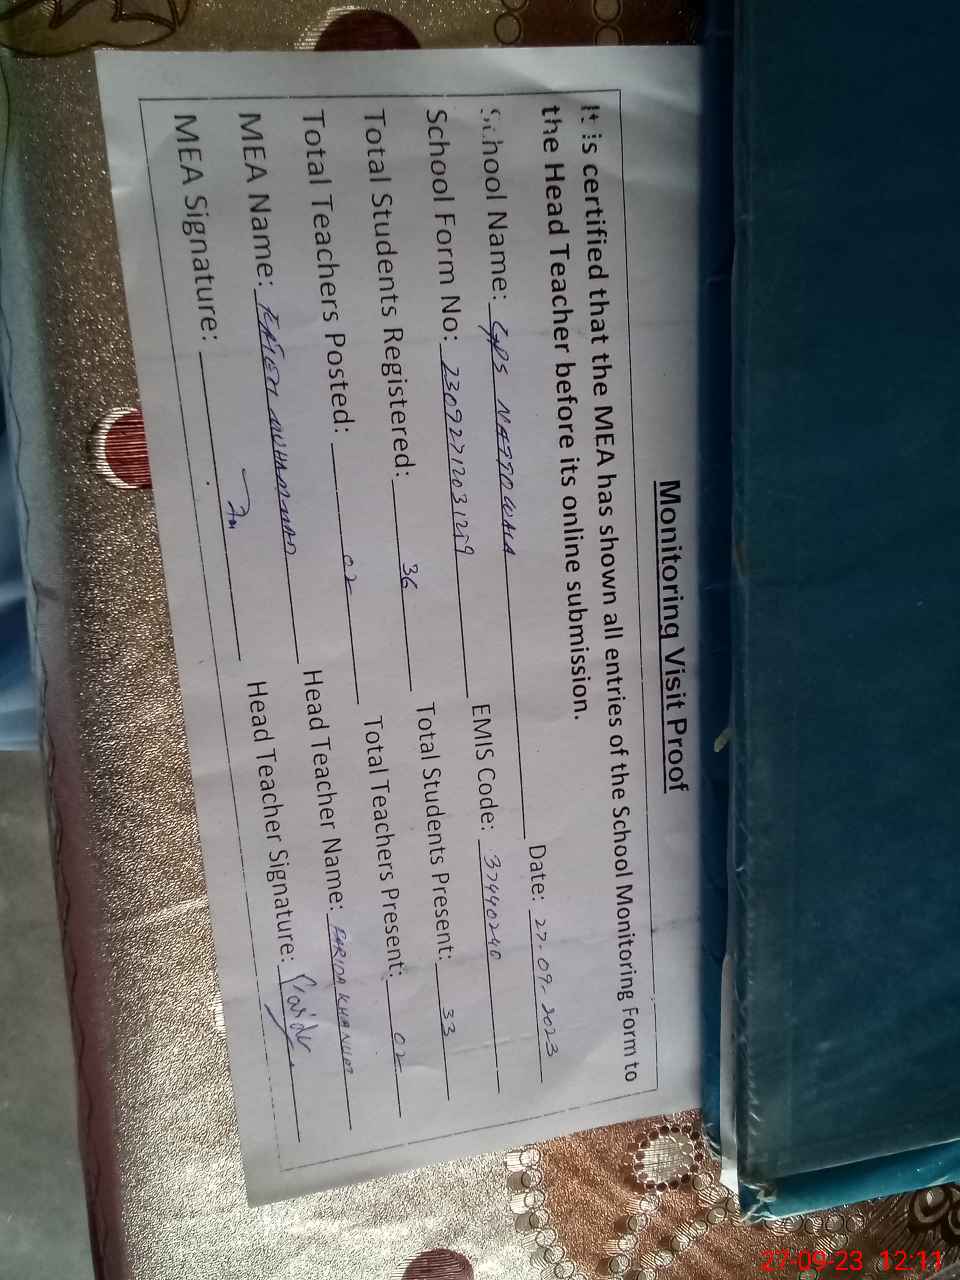 Monitoring Visit Proof
It is certified that the MEA has shown all entries of the School Monitoring Form to
the Head Teacher before its online submission.
School Name: GPS Date: 27-09-2023
School Form No: EMIS Code: 37440240
Total Students Registered: 36 Total Students Present: 33
Total Teachers Posted: 02 Total Teachers Present: 02
MEA Name: MUHAMMAD Head Teacher Name: FARIDA KHANUM
MEA Signature: Head Teacher Signature:
27-09-23 12:11